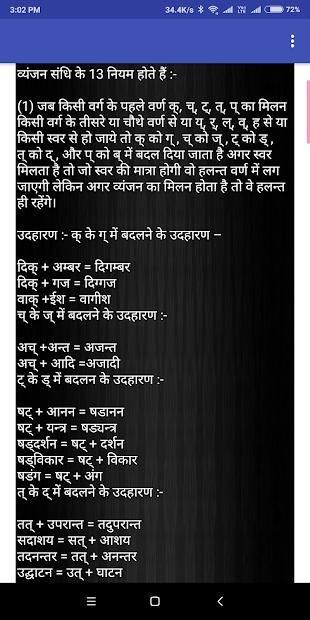 3:02 PM
34.4K/s
72%
व्यंजन संधि के 13 नियम होते हैं :-
(1) जब किसी वर्ग के पहले वर्ण क्, च्, ट्, त्, प् का मिलन
किसी वर्ग के तीसरे या चौथे वर्ण से या य्, र्, ल्, व्, ह से या
किसी स्वर से हो जाये तो क् को ग् , च् को ज् , ट् को ड् ,
त् को द् , और प् को ब् में बदल दिया जाता है अगर स्वर
मिलता है तो जो स्वर की मात्रा होगी वो हलन्त वर्ण में लग
जाएगी लेकिन अगर व्यंजन का मिलन होता है तो वे हलन्त
ही रहेंगे।
उदहारण :- क् के ग् में बदलने के उदहारण –
दिक् + अम्बर = दिगम्बर
दिक् + गज = दिग्गज
वाक् +ईश = वागीश
च् के ज् में बदलने के उदहारण :-
अच् +अन्त = अजन्त
अच् + आदि =अजादी
ट् के ड् में बदलन के उदहारण :-
षट् + आनन = षडानन
षट् + यन्त्र = षड्यन्त्र
षड्दर्शन = षट् + दर्शन
षड्विकार = षट् + विकार
षडंग = षट् + अंग
त् के द् में बदलने के उदहारण :-
तत् + उपरान्त = तदुपरान्त
सदाशय = सत् + आशय
तदनन्तर = तत् + अनन्तर
उद्घाटन = उत् + घाटन